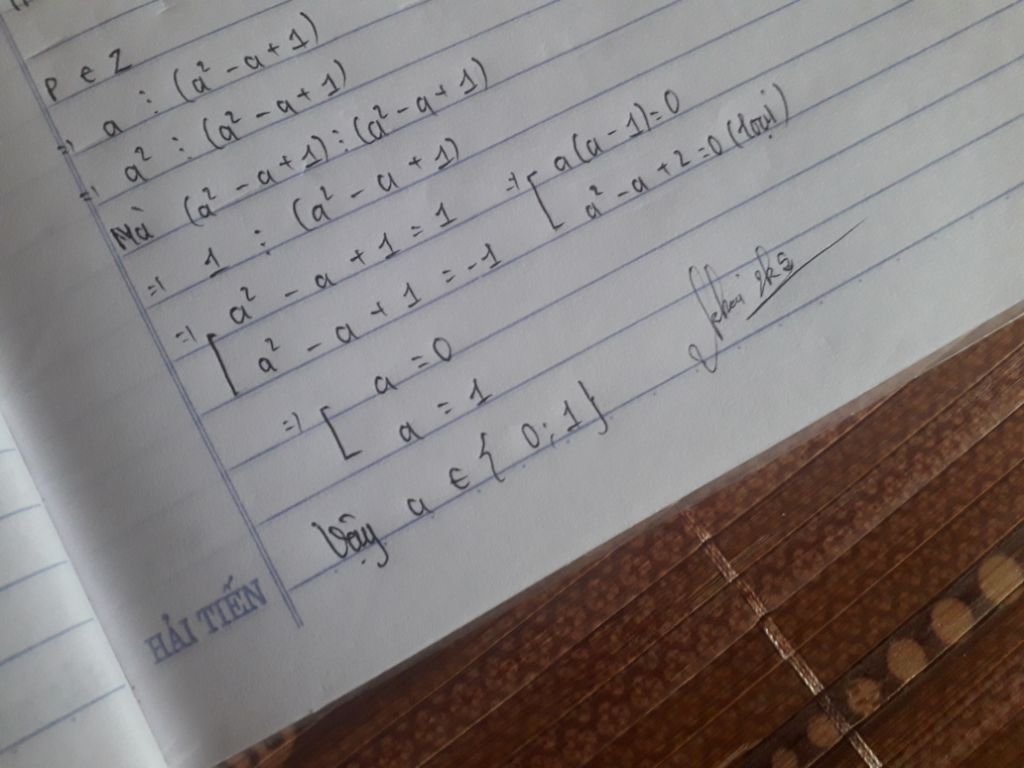 P ∈ Z
=> a ⋮ (a² - a + 1)
=> a² ⋮ (a² - a + 1)
Mà (a² - a + 1) ⋮ (a² - a + 1)
=> 1 ⋮ (a² - a + 1)
=> [ a² - a + 1 = 1
a² - a + 1 = -1
=> [ a(a - 1) = 0
a² - a + 2 = 0 (loại)
=> [ a = 0
a = 1
Vậy a ∈ { 0; 1 }
HẢI TIẾN